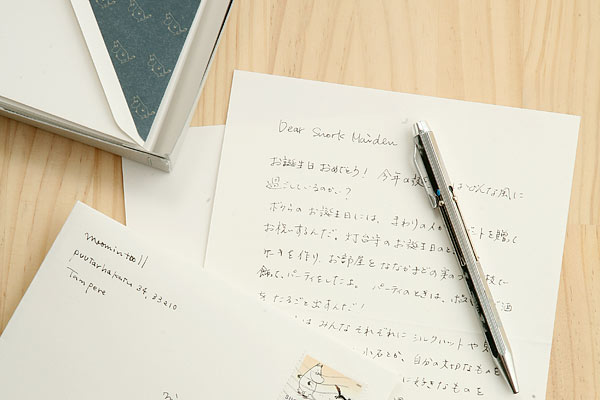 Dear Snork Maiden
お誕生日おめでとう! 今年の はどんな風に
過ごしているのかい?
ボクらのお誕生日には、まわりの人が を贈って
お祝いするんだ。灯台守のお誕生日のと
ケーキを作り、お部屋をななかまどの実の 枝で
飾って、パーティをしたよ。パーティのときは、 酒
をたるごと出すんだ!
はみんなそれぞれにシルクハットや
小石とか、自分の大切なものを
に好きなものを
moomintroll
puutarhakatu 34, 33210
Tampere